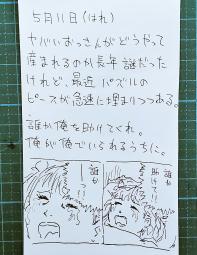 5月11日(はれ)
ヤバいおっさんがどうやって
産まれるのか長年謎だった
けれど、最近パズルの
ピースが急速に埋まりつつある。
誰か俺を助けてくれ。
俺が俺でいられるうちに。
誰か
助けて!!
誰か